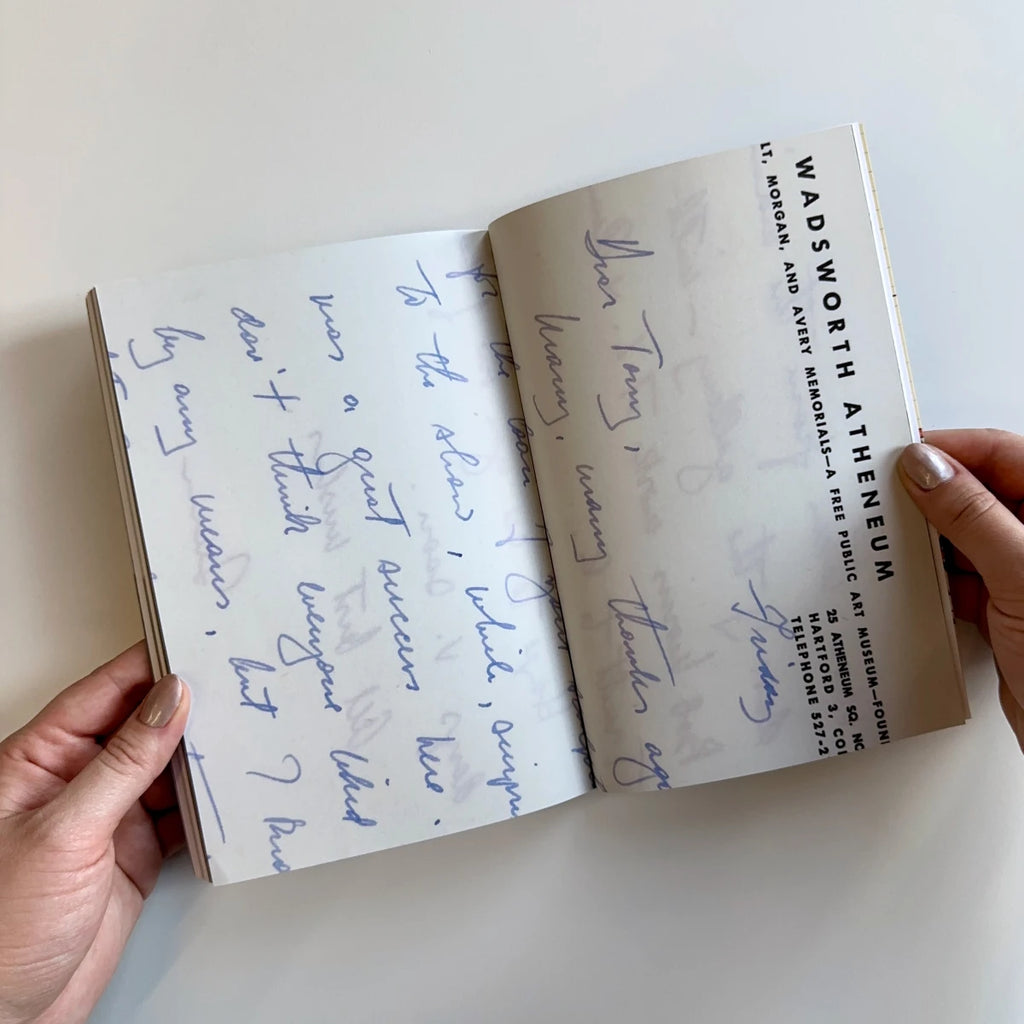 WADSWORTH ATHENEUM
LT, MORGAN, AND AVERY MEMORIALS—A FREE PUBLIC ART MUSEUM—FOUN
25 ATHENEUM SQ. NO
HARTFORD 3, CO
TELEPHONE 527-2
Friday
Dear Tony,
Many, many thanks aga
for the loan of your
To the show, which, surpri
was a great success here.
don't think everyone liked
by any means, but I